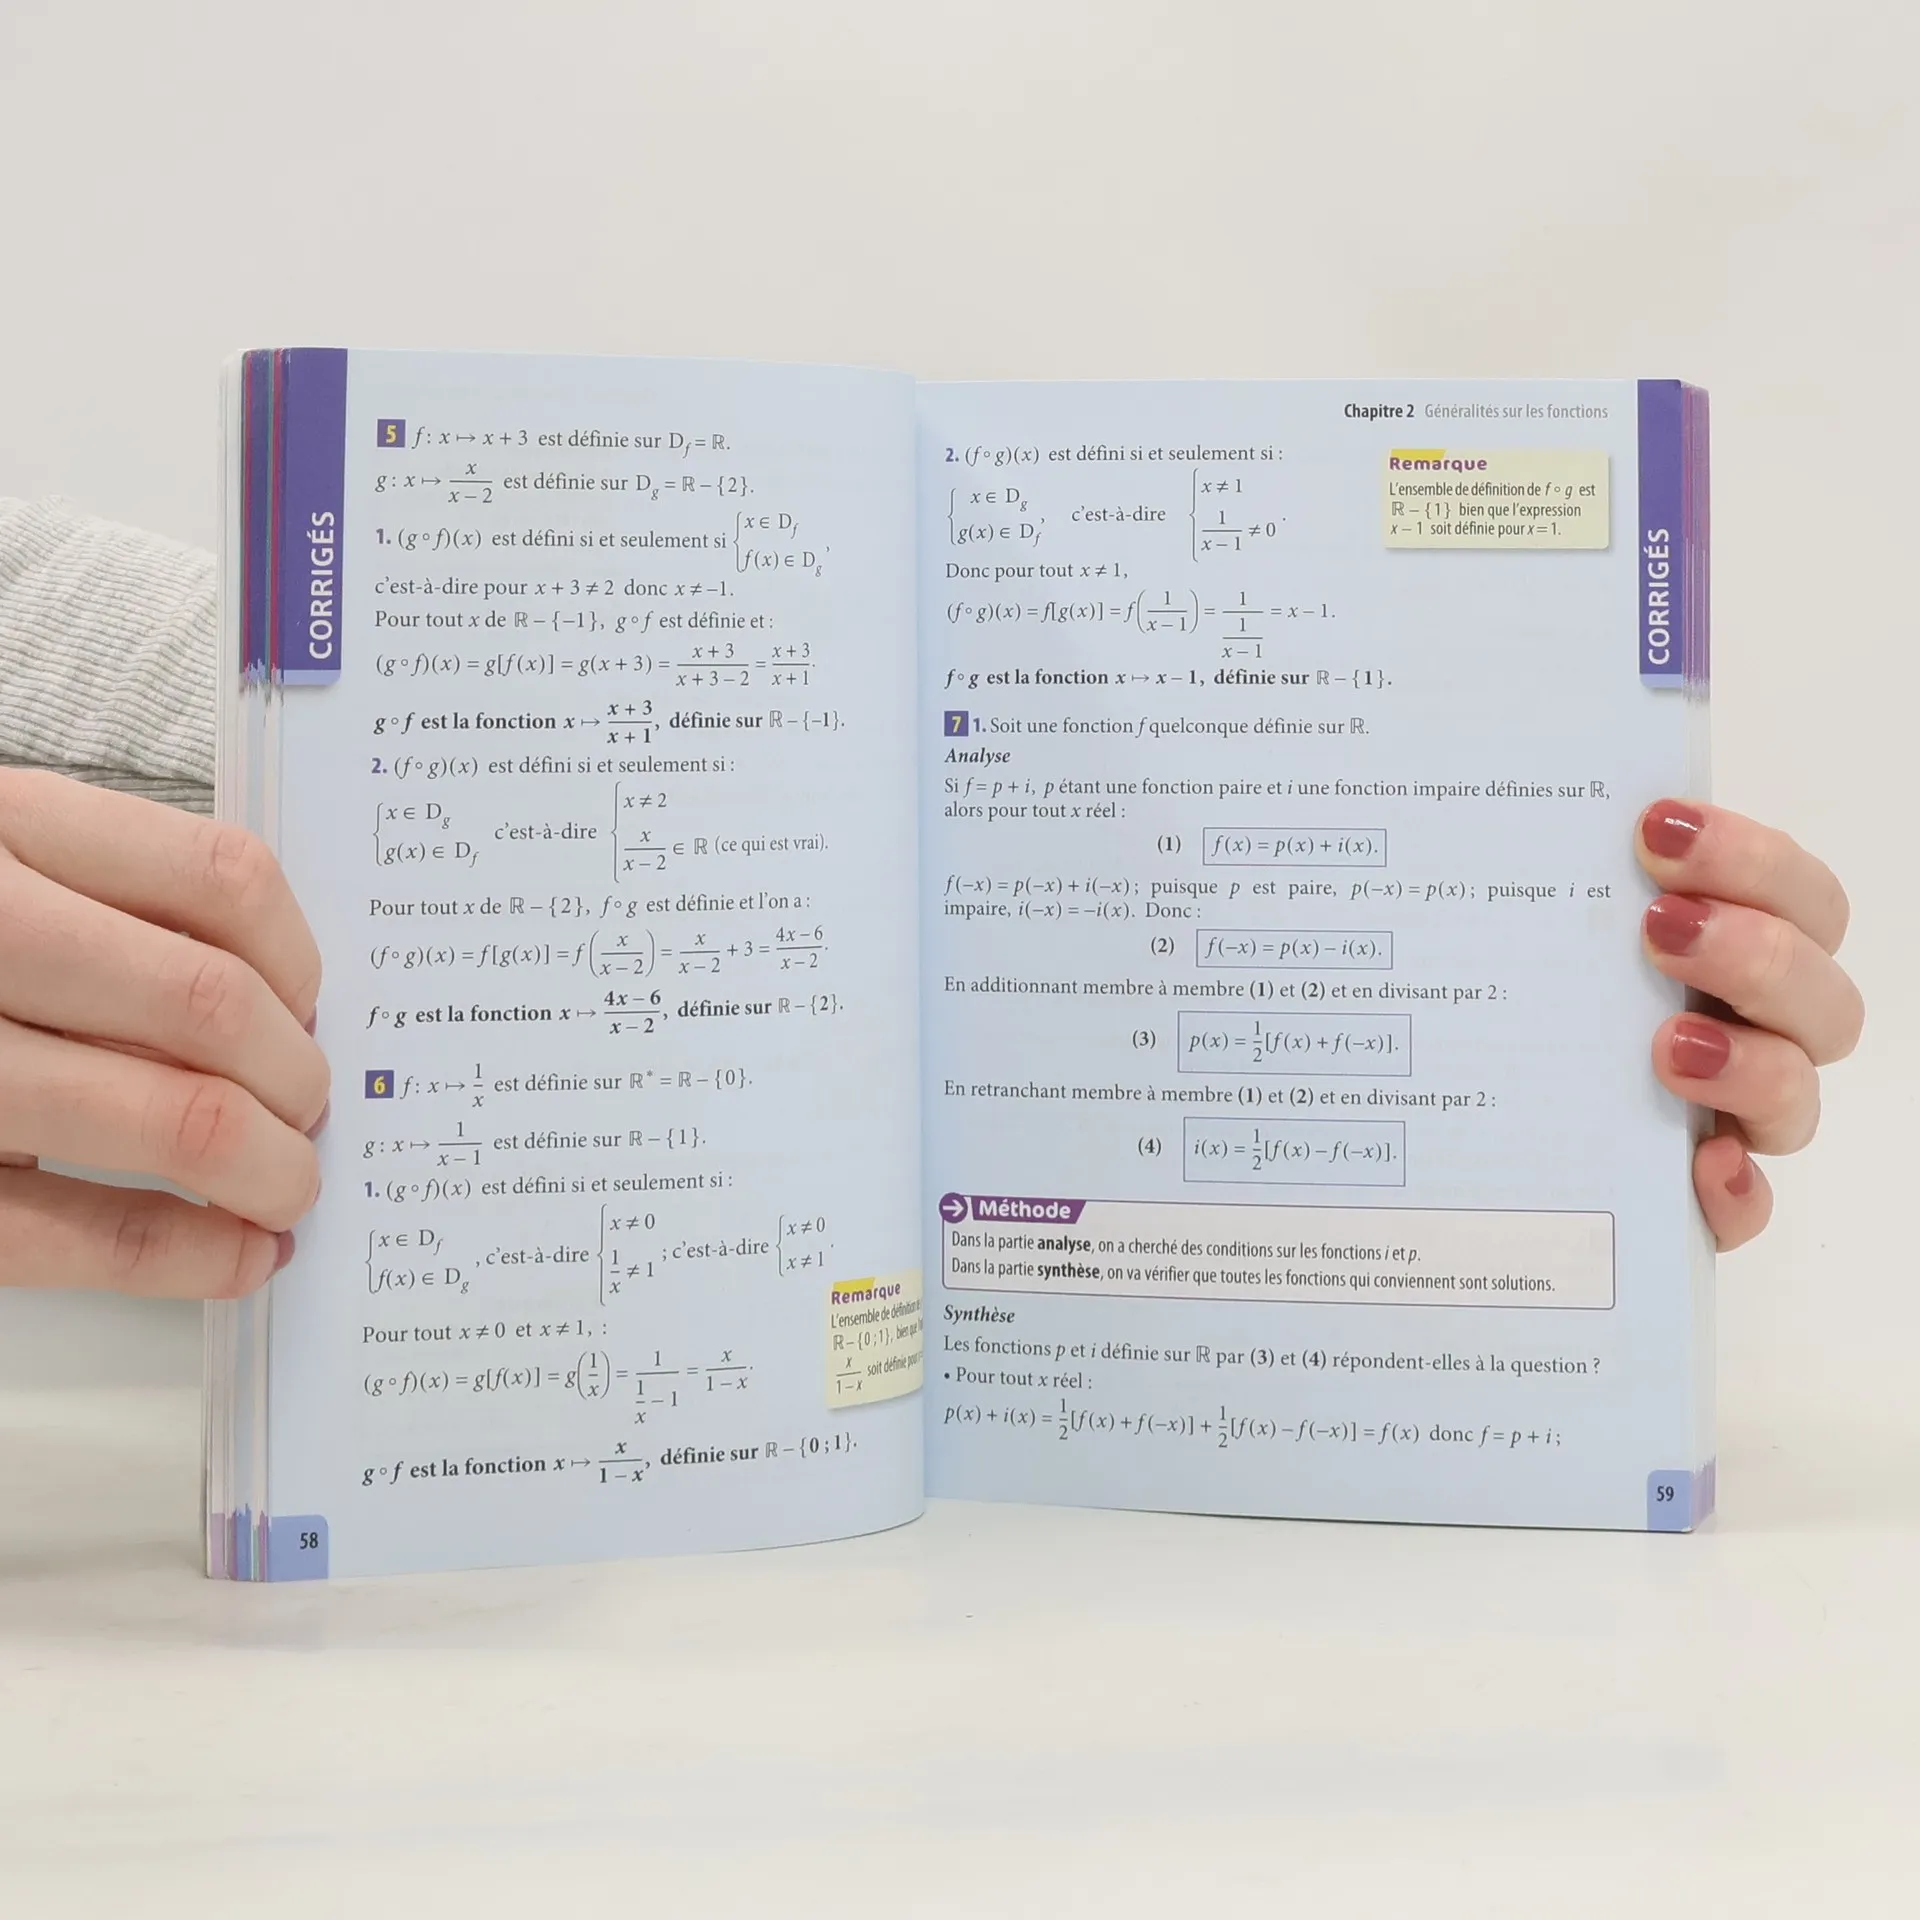 CORRIGÉS
5 f : x ↦ x + 3 est définie sur D_f = ℝ.
g : x ↦ x/(x − 2) est définie sur D_g = ℝ − {2}.
1. (g ∘ f)(x) est défini si et seulement si { x ∈ D_f ; f(x) ∈ D_g ,
c'est-à-dire pour x + 3 ≠ 2 donc x ≠ −1.
Pour tout x de ℝ − {−1}, g ∘ f est définie et :
(g ∘ f)(x) = g[f(x)] = g(x + 3) = (x + 3)/(x + 3 − 2) = (x + 3)/(x + 1).
g ∘ f est la fonction x ↦ (x + 3)/(x + 1), définie sur ℝ − {−1}.
2. (f ∘ g)(x) est défini si et seulement si :
{ x ∈ D_g ; g(x) ∈ D_f c'est-à-dire { x ≠ 2 ; x/(x − 2) ∈ ℝ (ce qui est vrai).
Pour tout x de ℝ − {2}, f ∘ g est définie et l'on a :
(f ∘ g)(x) = f[g(x)] = f(x/(x − 2)) = x/(x − 2) + 3 = (4x − 6)/(x − 2).
f ∘ g est la fonction x ↦ (4x − 6)/(x − 2), définie sur ℝ − {2}.
6 f : x ↦ 1/x est définie sur ℝ* = ℝ − {0}.
g : x ↦ 1/(x − 1) est définie sur ℝ − {1}.
1. (g ∘ f)(x) est défini si et seulement si :
{ x ∈ D_f ; f(x) ∈ D_g , c'est-à-dire { x ≠ 0 ; 1/x ≠ 1 ; c'est-à-dire { x ≠ 0 ; x ≠ 1 .
Pour tout x ≠ 0 et x ≠ 1, :
(g ∘ f)(x) = g[f(x)] = g(1/x) = 1/(1/x − 1) = x/(1 − x).
g ∘ f est la fonction x ↦ x/(1 − x), définie sur ℝ − {0 ; 1}.
Remarque
L'ensemble de définition
ℝ − {0 ; 1}, bien que
x/(1 − x) soit définie pour
58
Chapitre 2 Généralités sur les fonctions
CORRIGÉS
2. (f ∘ g)(x) est défini si et seulement si :
{ x ∈ D_g ; g(x) ∈ D_f , c'est-à-dire { x ≠ 1 ; 1/(x − 1) ≠ 0 .
Remarque
L'ensemble de définition de f ∘ g est
ℝ − {1} bien que l'expression
x − 1 soit définie pour x = 1.
Donc pour tout x ≠ 1,
(f ∘ g)(x) = f[g(x)] = f(1/(x − 1)) = 1/(1/(x − 1)) = x − 1.
f ∘ g est la fonction x ↦ x − 1, définie sur ℝ − {1}.
7 1. Soit une fonction f quelconque définie sur ℝ.
Analyse
Si f = p + i, p étant une fonction paire et i une fonction impaire définies sur ℝ,
alors pour tout x réel :
(1) f(x) = p(x) + i(x).
f(−x) = p(−x) + i(−x) ; puisque p est paire, p(−x) = p(x) ; puisque i est
impaire, i(−x) = −i(x). Donc :
(2) f(−x) = p(x) − i(x).
En additionnant membre à membre (1) et (2) et en divisant par 2 :
(3) p(x) = 1/2[f(x) + f(−x)].
En retranchant membre à membre (1) et (2) et en divisant par 2 :
(4) i(x) = 1/2[f(x) − f(−x)].
→ Méthode
Dans la partie analyse, on a cherché des conditions sur les fonctions i et p.
Dans la partie synthèse, on va vérifier que toutes les fonctions qui conviennent sont solutions.
Synthèse
Les fonctions p et i définie sur ℝ par (3) et (4) répondent-elles à la question ?
• Pour tout x réel :
p(x) + i(x) = 1/2[f(x) + f(−x)] + 1/2[f(x) − f(−x)] = f(x) donc f = p + i ;
59